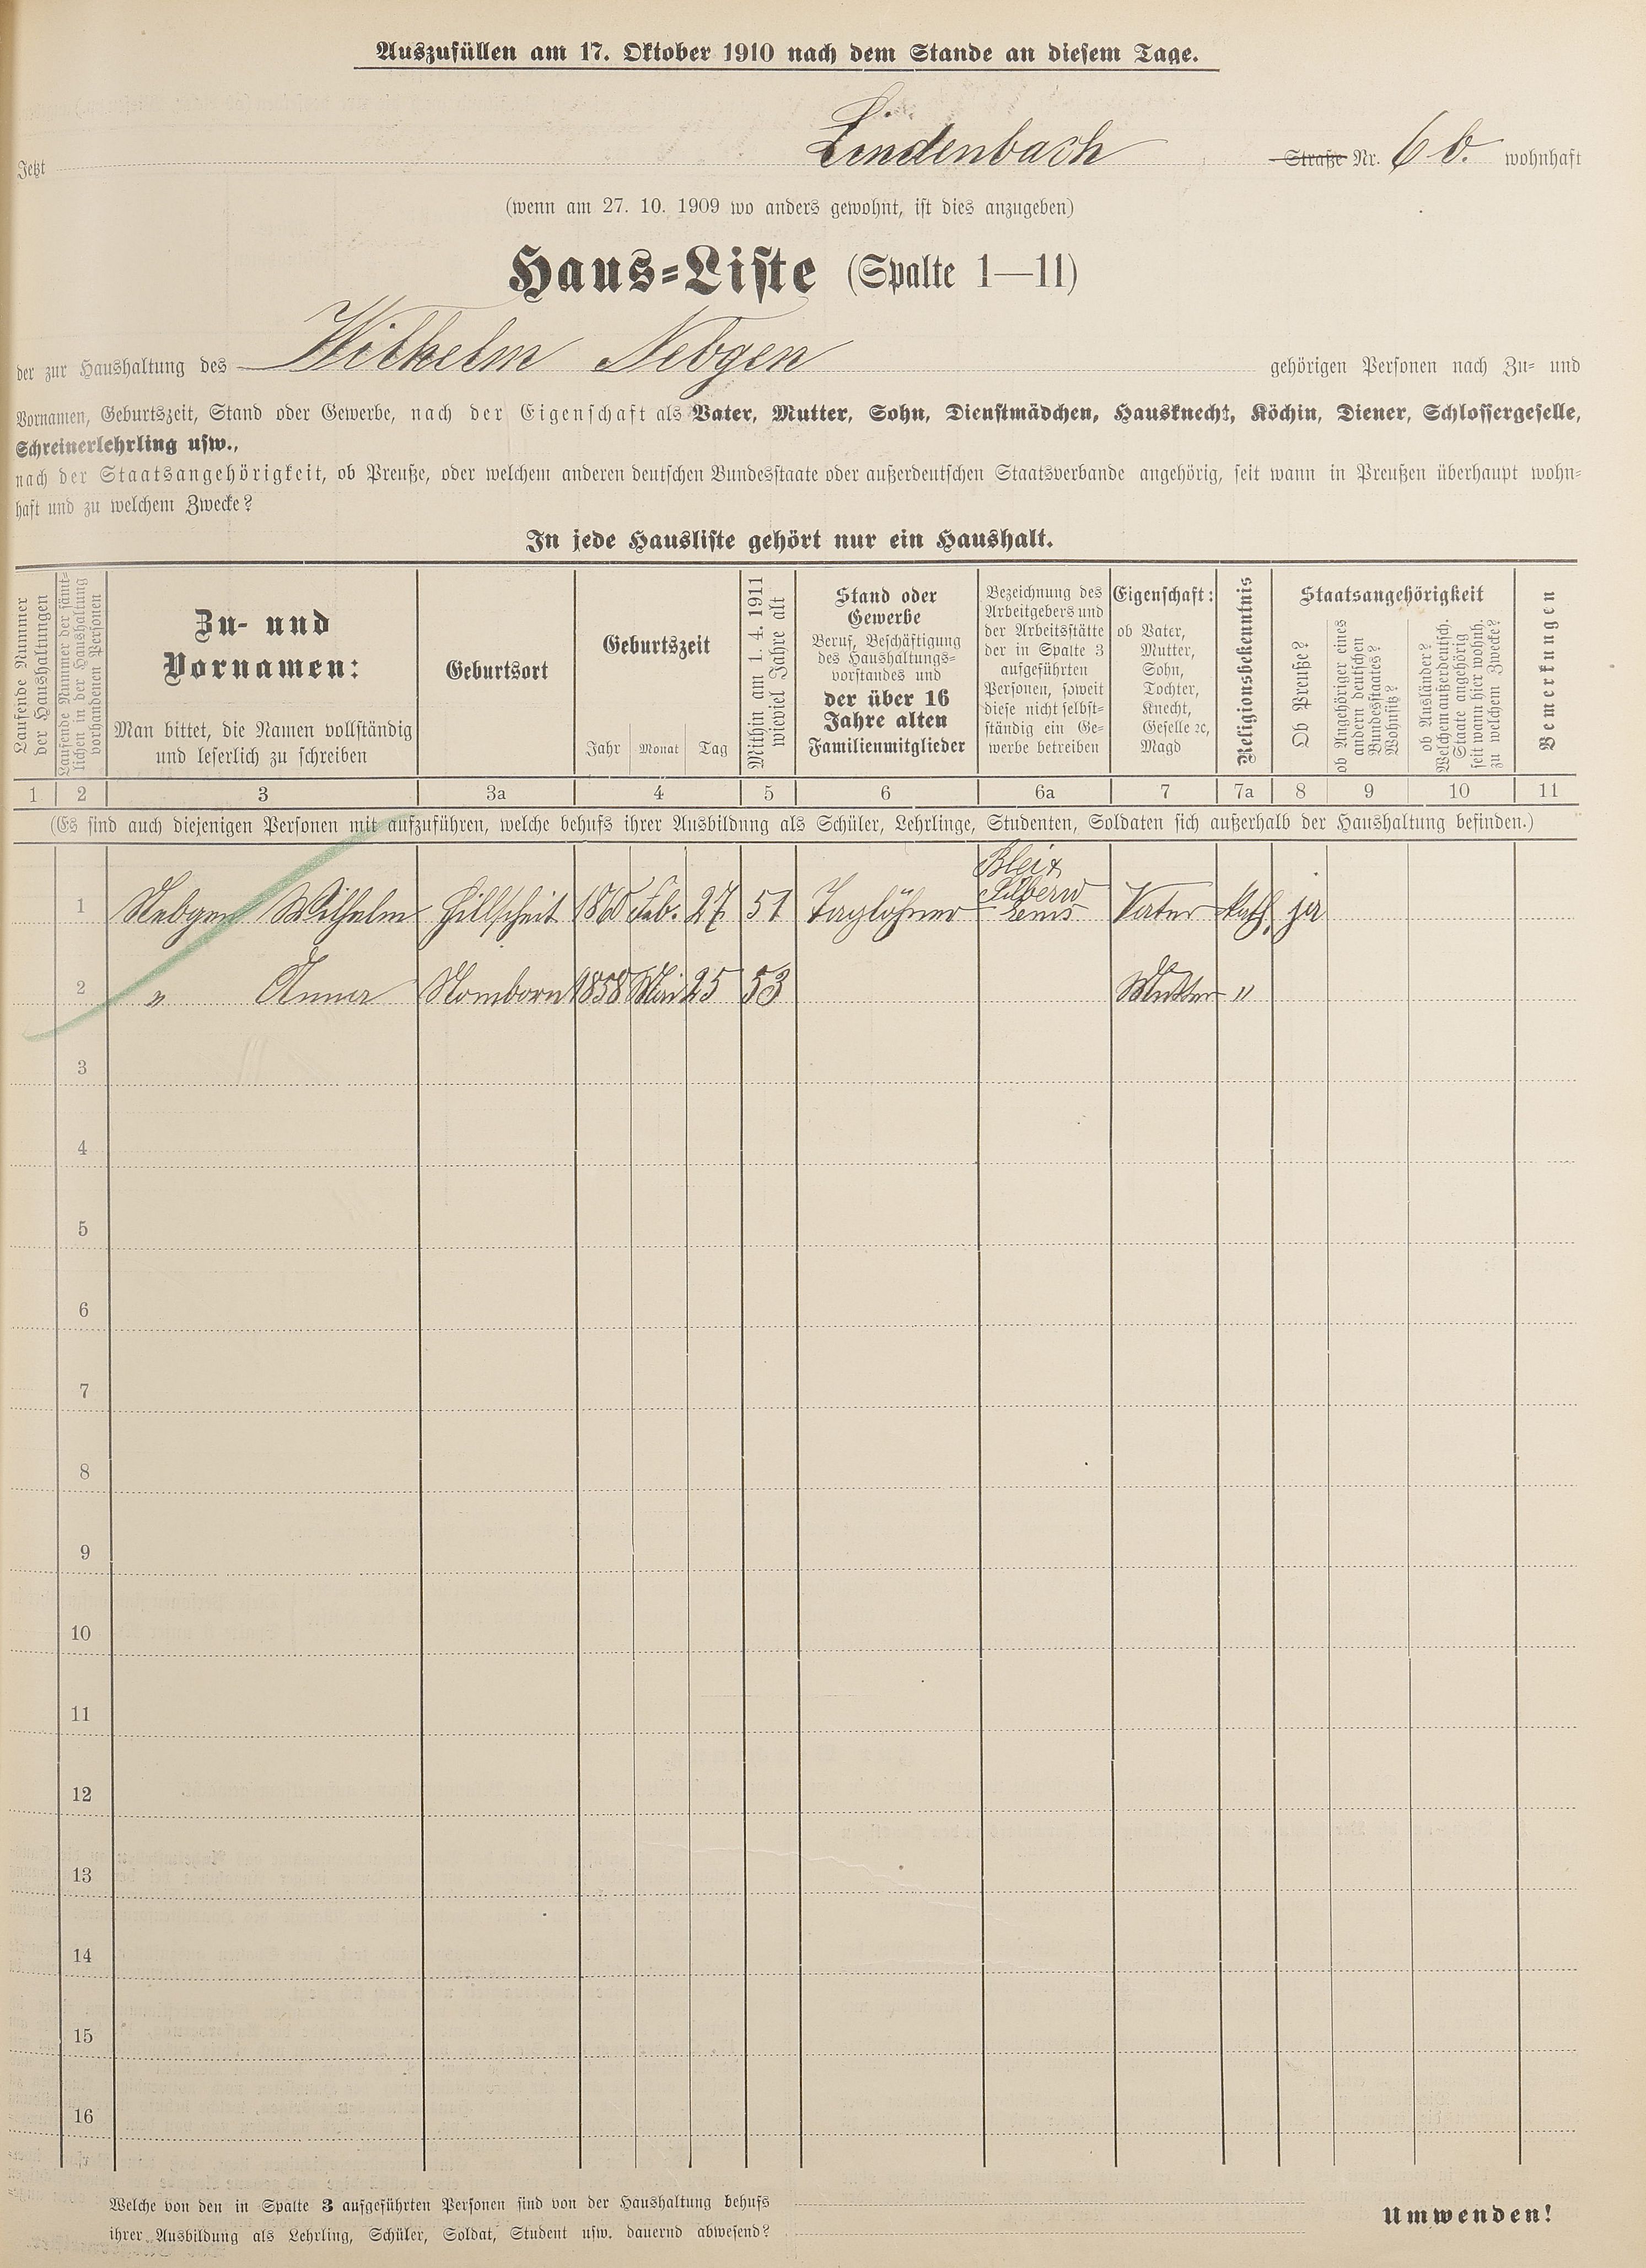 Auszufüllen am 17. Oktober 1910 nach dem Stande an diesem Tage.
Jetzt Lindenbach Straße Nr. 6 b. wohnhaft
(wenn am 27. 10. 1909 wo anders gewohnt, ist dies anzugeben)
Haus-Liste (Spalte 1—11)
der zur Haushaltung des Wilhelm Nebgen gehörigen Personen nach Zu- und
Vornamen, Geburtszeit, Stand oder Gewerbe, nach der Eigenschaft als Vater, Mutter, Sohn, Dienstmädchen, Hausknecht, Köchin, Diener, Schlossergeselle,
Schreinerlehrling usw.,
nach der Staatsangehörigkeit, ob Preuße, oder welchem anderen deutschen Bundesstaate oder außerdeutschen Staatsverbande angehörig, seit wann in Preußen überhaupt wohn-
haft und zu welchem Zwecke?
In jede Hausliste gehört nur ein Haushalt.
Laufende Nummer
der Haushaltungen
Laufende Nummer der sämt-
lichen in der Haushaltung
vorhandenen Personen
Zu- und
Vornamen:
Man bittet, die Namen vollständig
und leserlich zu schreiben
Geburtsort
Geburtszeit
Jahr Monat Tag
Mithin am 1. 4. 1911
wieviel Jahre alt
Stand oder
Gewerbe
Beruf, Beschäftigung
des Haushaltungs-
vorstandes und
der über 16
Jahre alten
Familienmitglieder
Bezeichnung des
Arbeitgebers und
der Arbeitsstätte
der in Spalte 3
aufgeführten
Personen, soweit
diese nicht selbst-
ständig ein Ge-
werbe betreiben
Eigenschaft:
ob Vater,
Mutter,
Sohn,
Tochter,
Knecht,
Geselle ꝛc,
Magd
Religionsbekenntnis
Staatsangehörigkeit
Ob Preuße?
ob Angehöriger eines
andern deutschen
Bundesstaates?
Wohnsitz?
ob Ausländer?
Welchem außerdeutsch.
Staate angehörig
seit wann hier wohnh.
zu welchem Zwecke?
Bemerkungen
1 2 3 3a 4 5 6 6a 7 7a 8 9 10 11
(Es sind auch diejenigen Personen mit aufzuführen, welche behufs ihrer Ausbildung als Schüler, Lehrlinge, Studenten, Soldaten sich außerhalb der Haushaltung befinden.)
Blei &
Silberw
Ems
1 Nebgen Wilhelm Hillscheit 1860 Feb. 27 51 Taglöhner Vater kath. ja
2 " Anna Nomborn 1858 Mai 25 53 Mutter "
3
4
5
6
7
8
9
10
11
12
13
14
15
16
Welche von den in Spalte 3 aufgeführten Personen sind von der Haushaltung behufs
ihrer Ausbildung als Lehrling, Schüler, Soldat, Student usw. dauernd abwesend?
Umwenden!